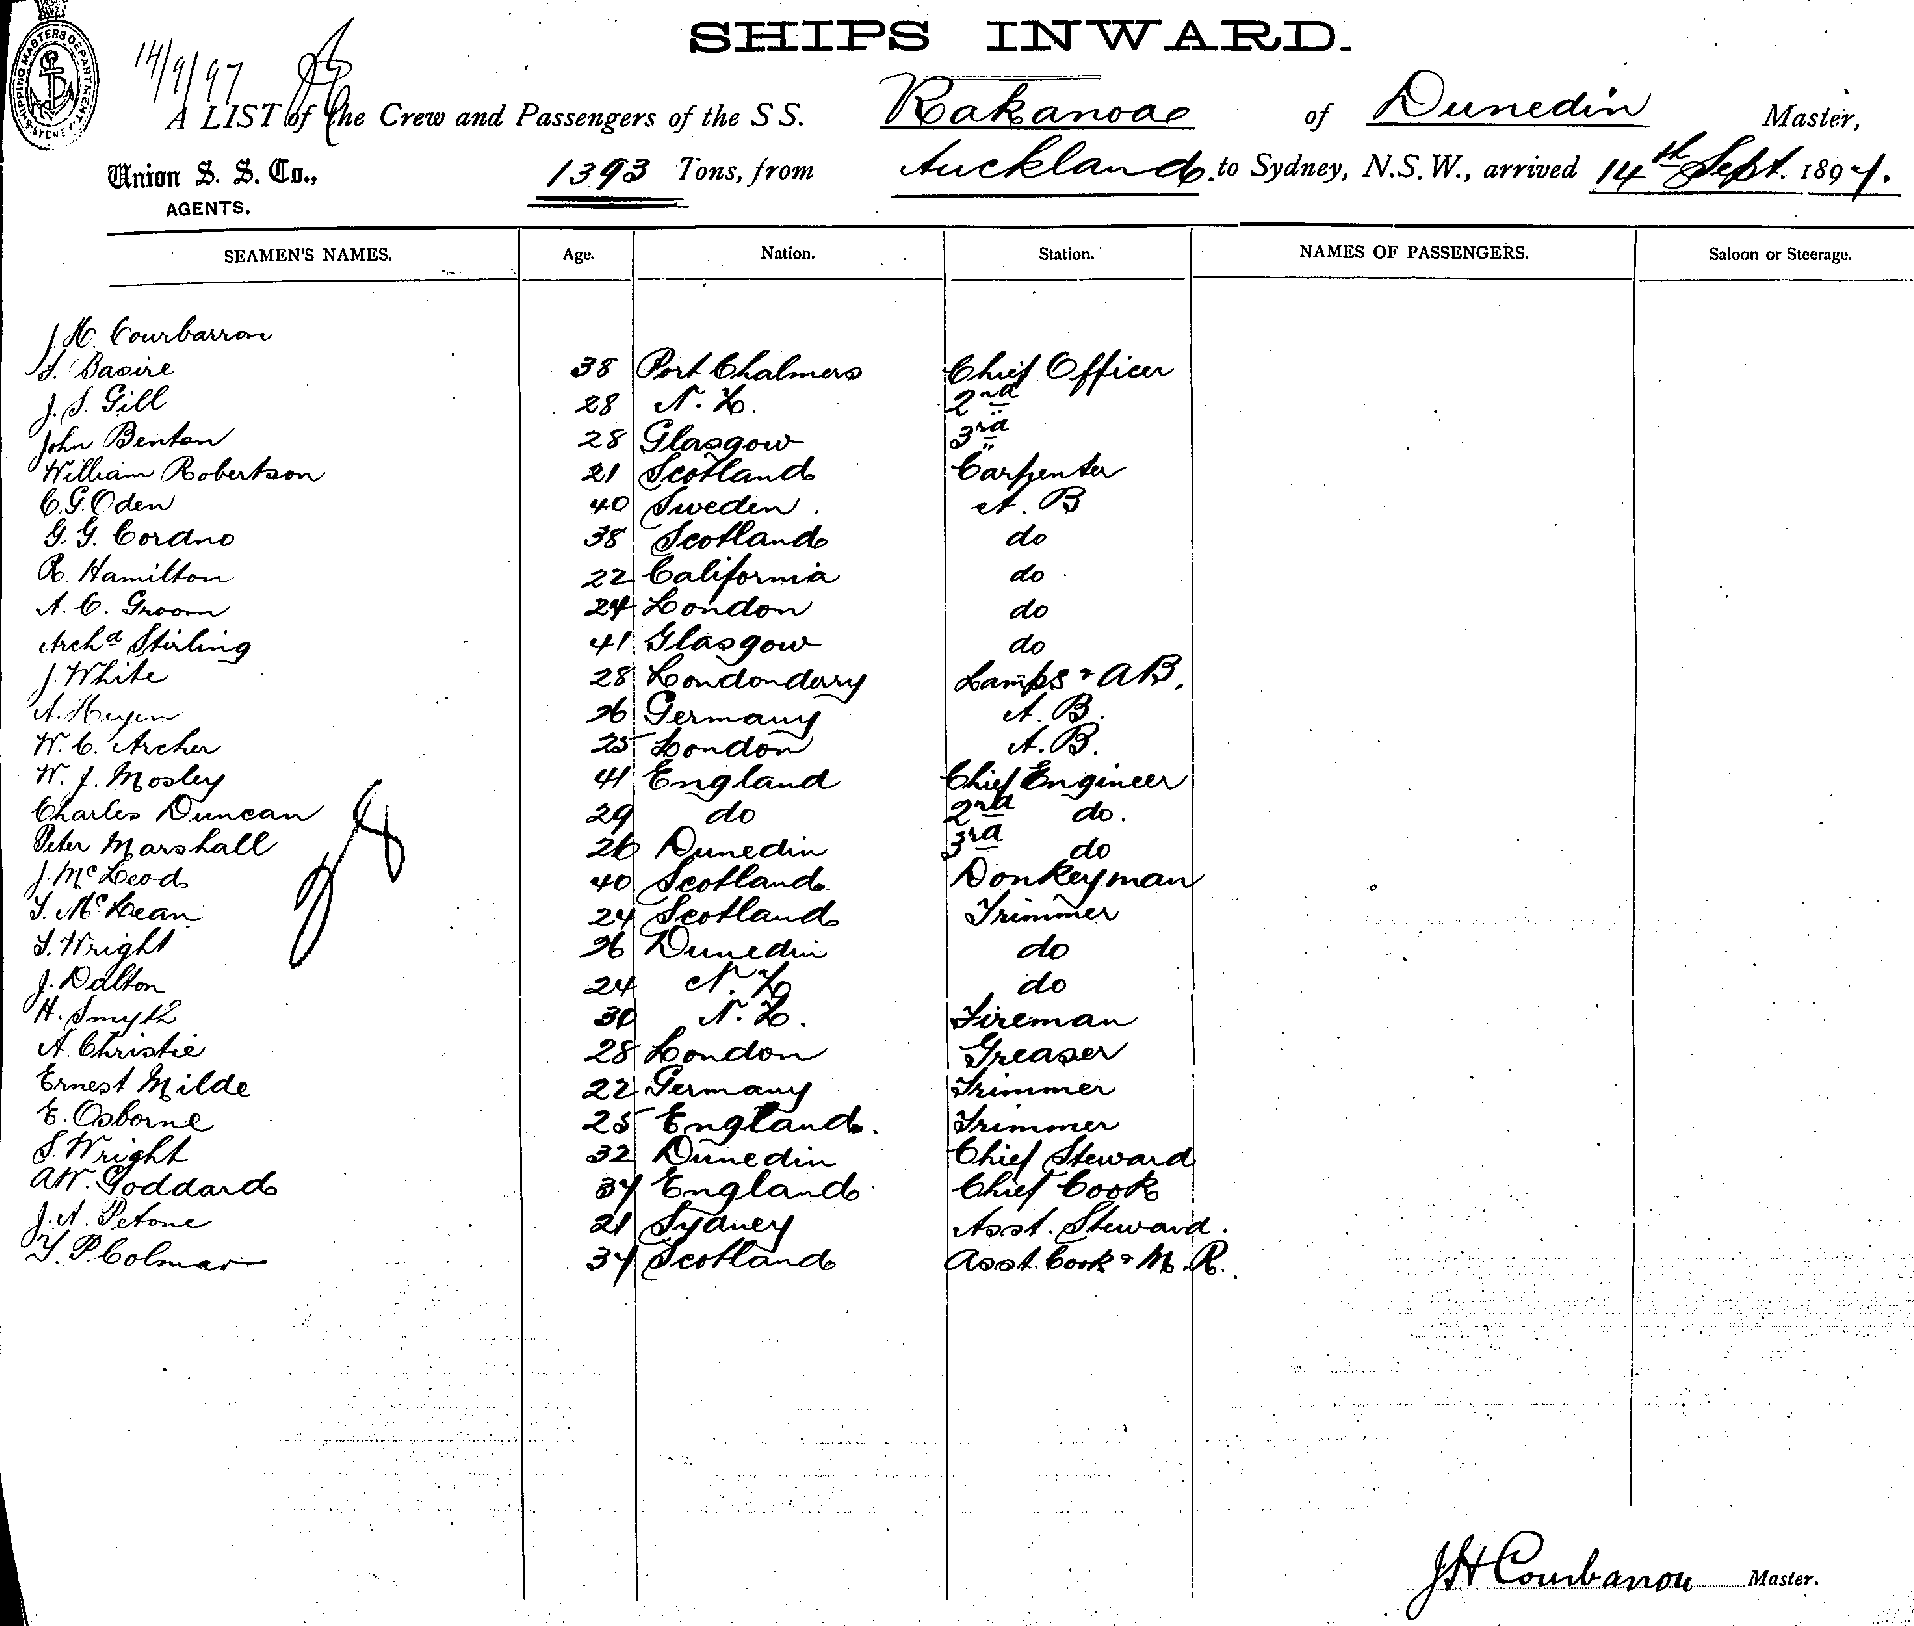 SHIPS INWARD.
14/9/97
A LIST of the Crew and Passengers of the S S. Kakanoae of Dunedin Master,
Union S. S. Co., 1393 Tons, from Auckland to Sydney, N.S.W., arrived 14th Sept. 1897.
AGENTS.
SEAMEN'S NAMES. Age. Nation. Station. NAMES OF PASSENGERS. Saloon or Steerage.
J. H. Courbarron
S. Basire 38 Port Chalmers Chief Officer
J. S. Gill 28 N. Z. 2nd "
John Benton 28 Glasgow 3rd "
William Robertson 21 Scotland Carpenter
C. G. Oden 40 Sweden. A. B
G. G. Cordno 38 Scotland do
R. Hamilton 22 California do
A. C. Groom 24 London do
Archd Stirling 41 Glasgow do
J. White 28 Londonderry Lamps & AB.
A. Heyen 26 Germany A. B.
W. C. Archer 25 London A. B.
W. J. Mosley 41 England Chief Engineer
Charles Duncan 29 do 2nd do.
Peter Marshall 26 Dunedin 3rd do
J. McLeod 40 Scotland Donkeyman
T. McLean 24 Scotland Trimmer
T. Wright 26 Dunedin do
J. Dalton 24 N. Z do
H. Smyth 30 N. Z. Fireman
A. Christie 28 London Greaser
Ernest Milde 22 Germany Trimmer
E. Osborne 25 England. Trimmer
S. Wright 32 Dunedin Chief Steward
A W. Goddard 34 England Chief Cook
J. A. Petone 21 Sydney Asst. Steward.
T. P. Colmar 34 Scotland Asst. Cook & M. R.
J H Courbarron Master.